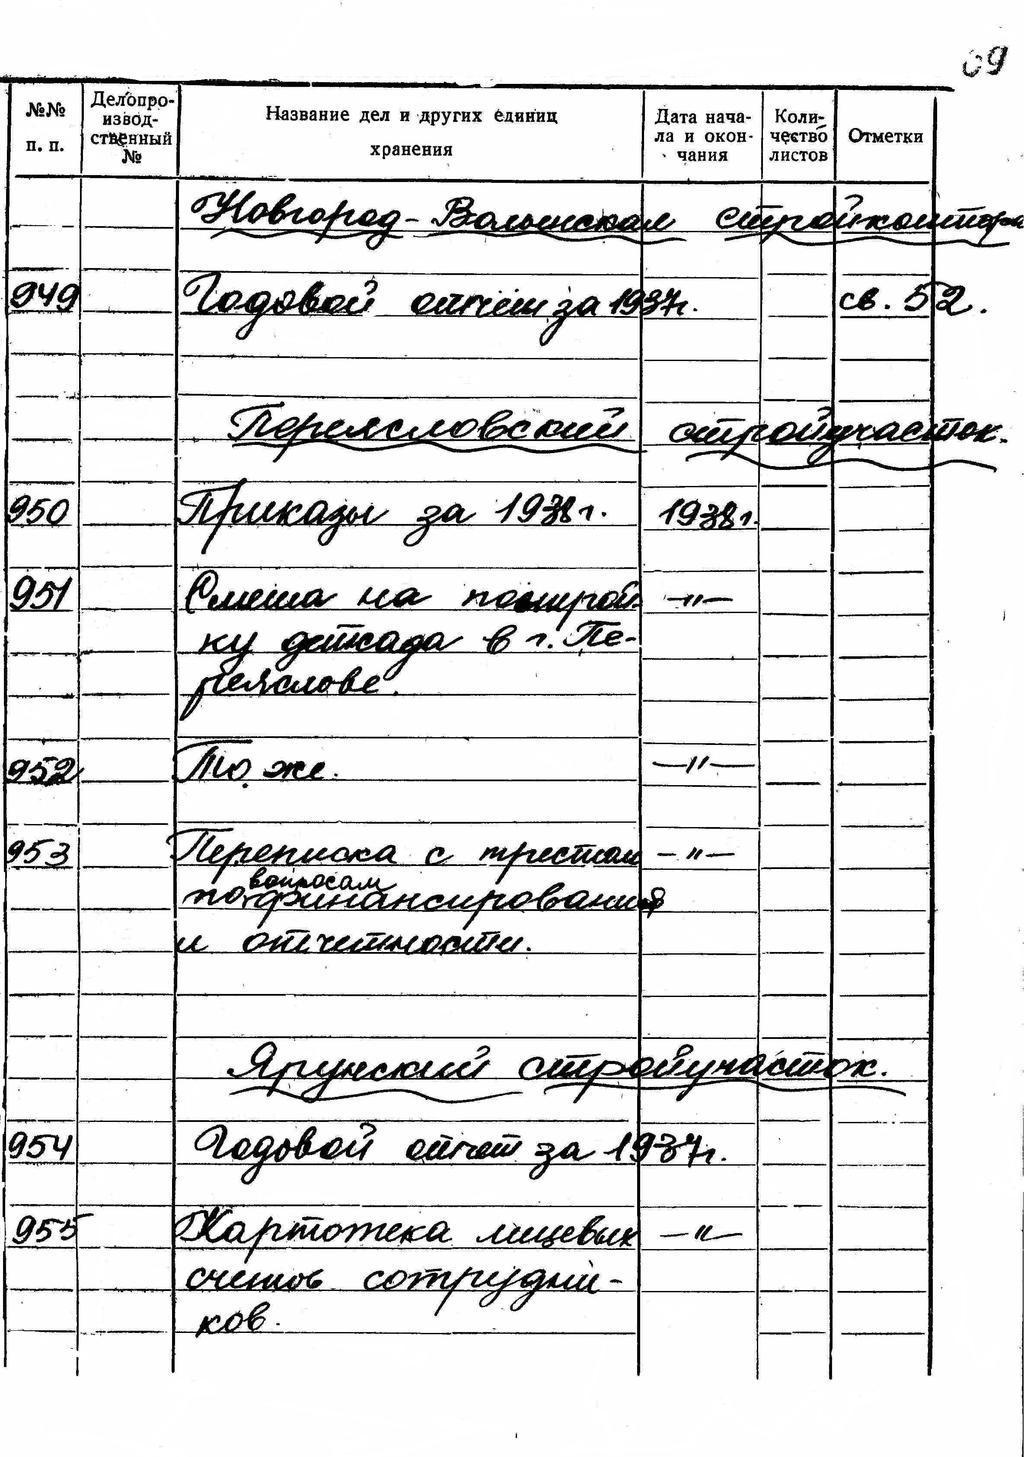 69
№№ п. п. Делопро-извод-ственный № Название дел и других единиц хранения Дата нача-ла и окон-чания Коли-чество листов Отметки
Новгород-Волынская стройконтора
949 Годовой отчет за 1937г. св. 52.
Переясловский стройучасток.
950 Приказы за 1938г. 1938г.
951 Смета на построй- -"-
ку детсада в г. Пе-
реяслове.
952 То же. -"-
953 Переписка с трестом -"-
вопросам
по финансирования
и отчетности.
Ярунский стройучасток.
954 Годовой отчет за 1937г.
955 Картотека лицевых -"-
счетов сотрудни-
ков.